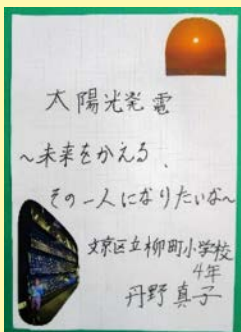 太陽光発電
~未来をかえる、
その一人になりたいな~
文京区立柳町小学校
4年
丹野真子